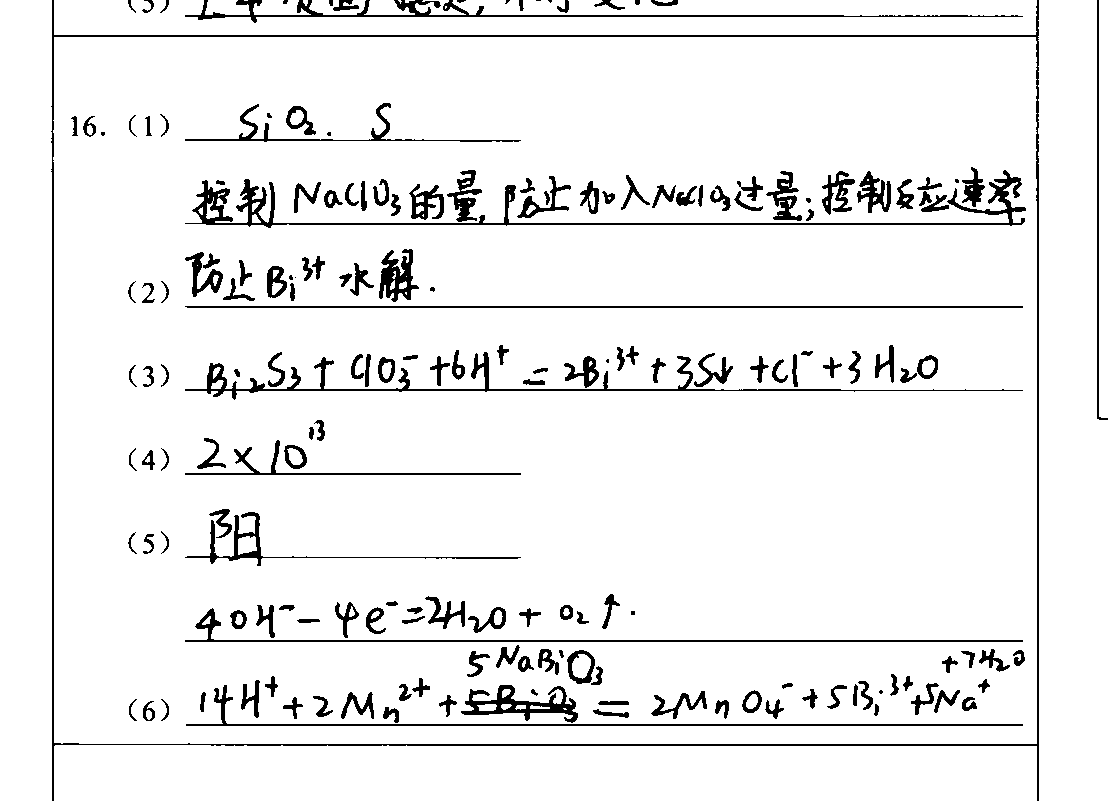 (3)
16. (1) SiO₂. S
控制 NaClO₃的量,防止加入NaClO₃过量;控制反应速率
(2) 防止Bi³⁺水解.
(3) Bi₂S₃+ClO₃⁻+6H⁺=2Bi³⁺+3S↓+Cl⁻+3H₂O
(4) 2×10¹³
(5) 阳
4OH⁻-4e⁻=2H₂O+O₂↑.
(6) 14H⁺+2Mn²⁺+5NaBiO₃=2MnO₄⁻+5Bi³⁺+5Na⁺+7H₂O